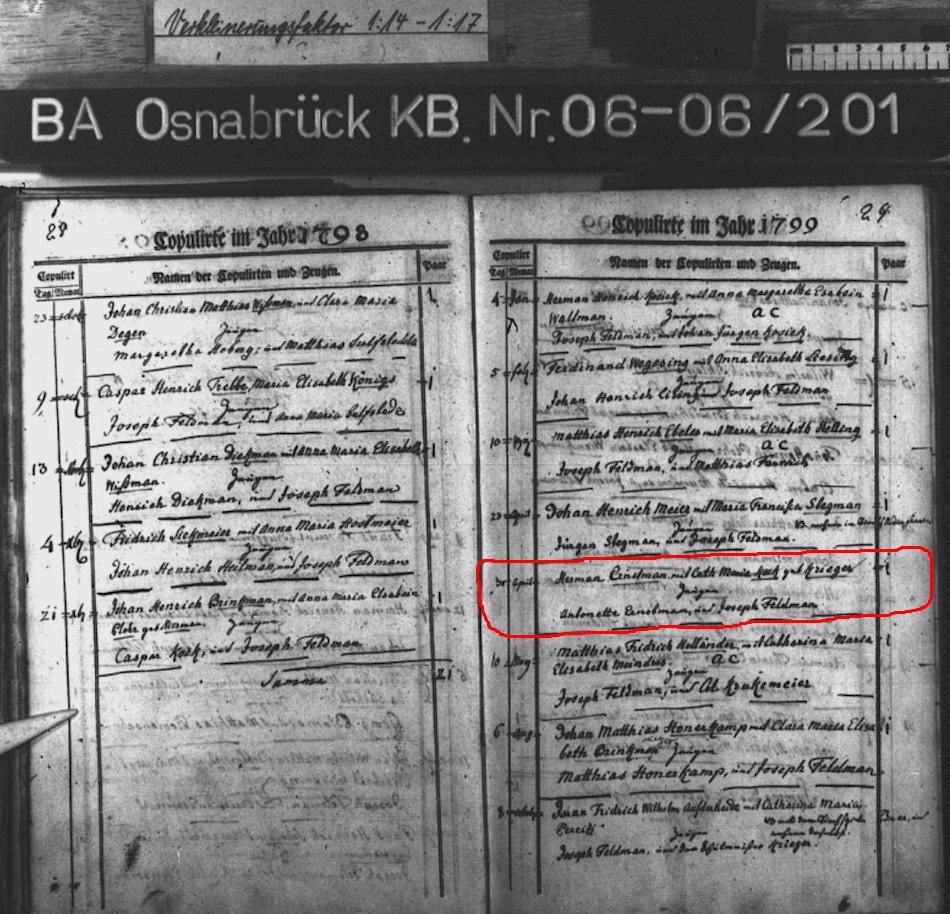 Verkleinerungsfaktor 1:14 – 1:17
BA Osnabrück KB. Nr. 06-06/201
28
Copulirte im Jahr 1798
Copulirt
Tag Monat
Namen der Copulirten und Zeugen.
Paar
23 Johan Christian Matthias und Clara Maria 1
Degen Zeugen
Margaretha und Matthias
9 Caspar Henrich Trebbe, Maria Elisabeth Königs 1
Zeugen
Joseph Feldman, und Anna Maria
13 Johan Christian Diekman mit Anna Maria Elisabeth 1
Wißman. Zeugen
Henrich Diekman, und Joseph Feldman
4 Fridrich Siekmeier mit Anna Maria Hostmeier 1
Zeugen
Johan Henrich Heilman, und Joseph Feldman
21 Johan Henrich Brinkman, mit Anna Maria Elsabein 1
Zeugen
Caspar Kock, und Joseph Feldman
Summa 21
29
Copulirte im Jahr 1799
Copulirt
Tag Monat
Namen der Copulirten und Zeugen.
Paar
4 Jan Herman Henrich Kosiek, mit Anna Margaretha Elsabein 1
Wallman. Zeugen a c
Joseph Feldman, und Johan Jürgen Kosiek.
5 Feb Ferdinand Wegesing mit Anna Elisabeth 1
Zeugen
Johan Henrich und Joseph Feldman
10 Matthias Henrich Ebeler mit Maria Elisabeth Helling 1
Zeugen a c
Joseph Feldman, und Matthias
23 April Johan Henrich Meier mit Maria Franciska Slegman 1
Zeugen
Jürgen Slegman, und Joseph Feldman.
30 April Herman Ernstman mit Cath Maria Kock geb Krieger 1
Zeugen
Antonette Ernstman, und Joseph Feldman
10 May Matthias Fridrich Holländer, mit Catharina Maria 1
Elisabeth Meinders. a c
Zeugen
Joseph Feldman, und Krukemeier
6 Aug Johan Matthias Honerkamp mit Clara Maria Elisa 1
beth Brinkman Zeugen
Matthias Honerkamp, und Joseph Feldman
8 Johan Fridrich Wilhelm mit Catharina Maria
Zeugen
Joseph Feldman, und Krieger.